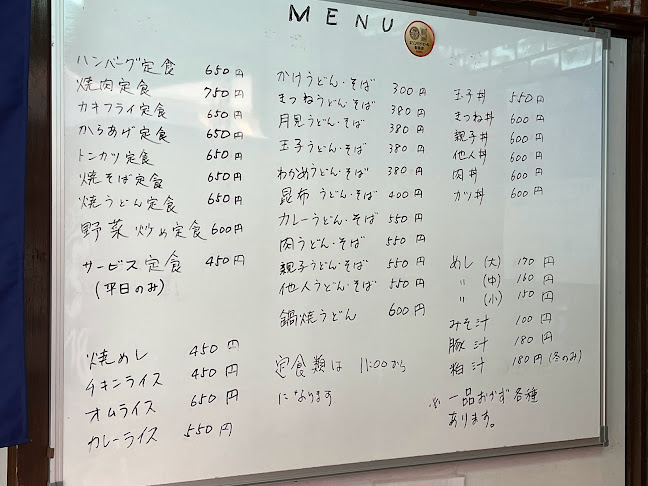 MENU
ハンバーグ定食 650円
焼肉定食 750円
カキフライ定食 650円
からあげ定食 650円
トンカツ定食 650円
焼そば定食 650円
焼うどん定食 650円
野菜炒め定食 600円
サービス定食 450円
(平日のみ)
焼めし 450円
チキンライス 450円
オムライス 650円
カレーライス 550円
かけうどん・そば 300円
きつねうどん・そば 380円
月見うどん・そば 380円
玉子うどん・そば 380円
わかめうどん・そば 380円
昆布うどん・そば 400円
カレーうどん・そば 550円
肉うどん・そば 550円
親子うどん・そば 550円
他人うどん・そば 550円
鍋焼うどん 600円
定食類は 11:00から
になります
玉子丼 550円
きつね丼 600円
親子丼 600円
他人丼 600円
肉丼 600円
カツ丼 600円
めし (大) 170円
〃 (中) 160円
〃 (小) 150円
みそ汁 100円
豚汁 180円
粕汁 180円(冬のみ)
※ 一品おかず各種
あります。